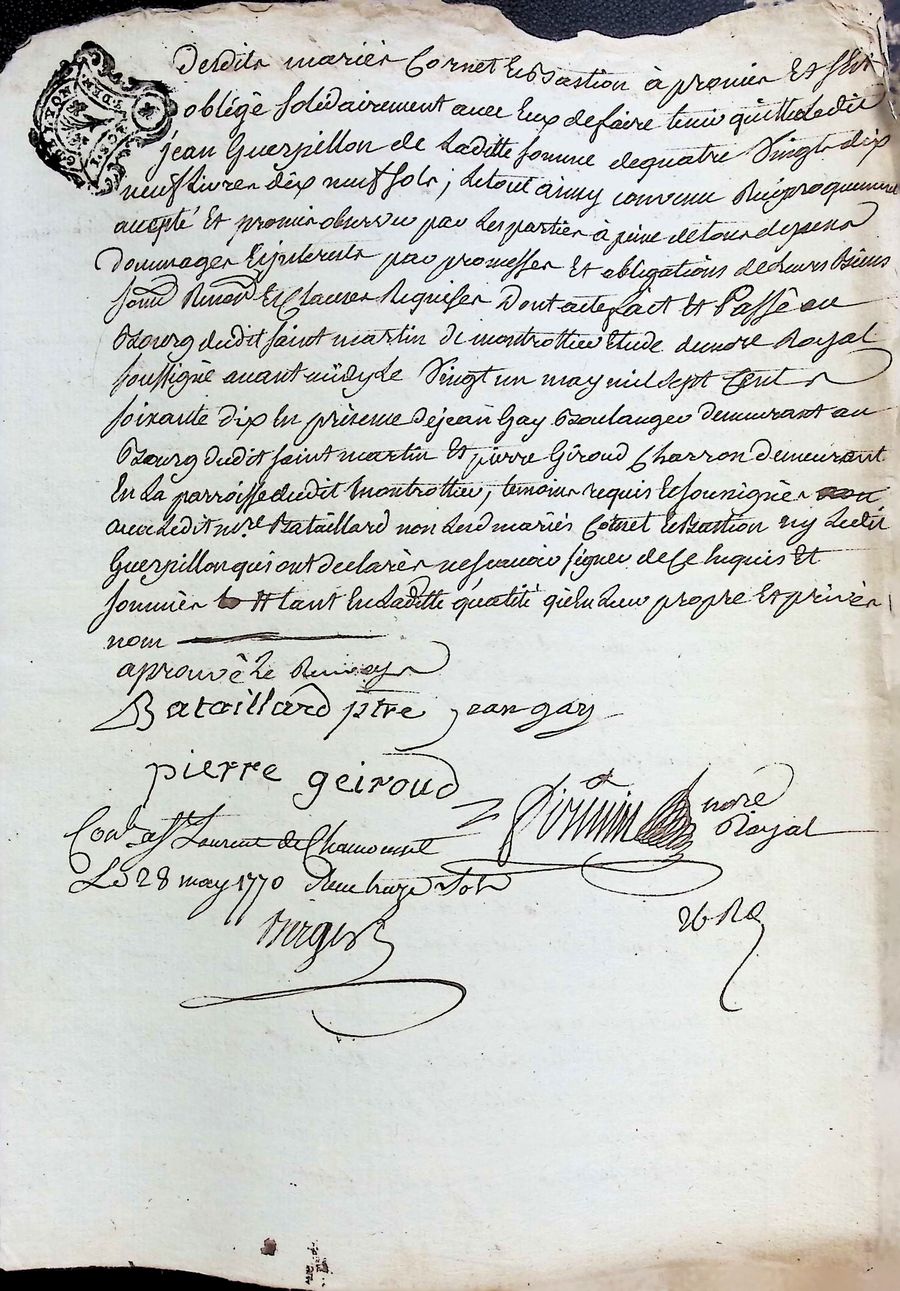 Desdits mariés Cornet et Bastion à promis Et s'est
oblégé solidairement avec Eux de faire tenir quitte Ledit
jean Guerpillon de Laditte somme de quatre Vingts dix
neuf Livres dix neuf sols; Le tout ainsy convenu Réciproquement
accepté Et promis observer par Les parties à peine de tous depens
Dommages Et jnterests par promesses Et obligations de Leurs Biens
soum Renon Et Clauses Requises Dont acte fait Et Passé au
Bourg dudit saint martin de montrottier Etude du nore Royal
soussigné avant midy Le Vingt un may mil sept Cents
soixante dix En présence de jean Gay Boulanger demeurant au
Bourg dudit saint martin Et pierre Giroud Charron demeurant
En La parroisse dudit Montrottier, temoins requis Et soussignés
avec Ledit mre. Bataillard non Lesd mariés Cornet et Bastion ny Ledit
Guerpillon qui ont declarés ne sçavoir signer de Ce Enquis Et
sommés tant En Laditte qualité qu'En Leur propre Et privés
nom
aprouvé Le Renvoy
Bataillard ptre jean gay
pierre geiroud
nore
Royal
Conlé à St Laurent de Chamousset
Le 28 may 1770 Reçu treize sols